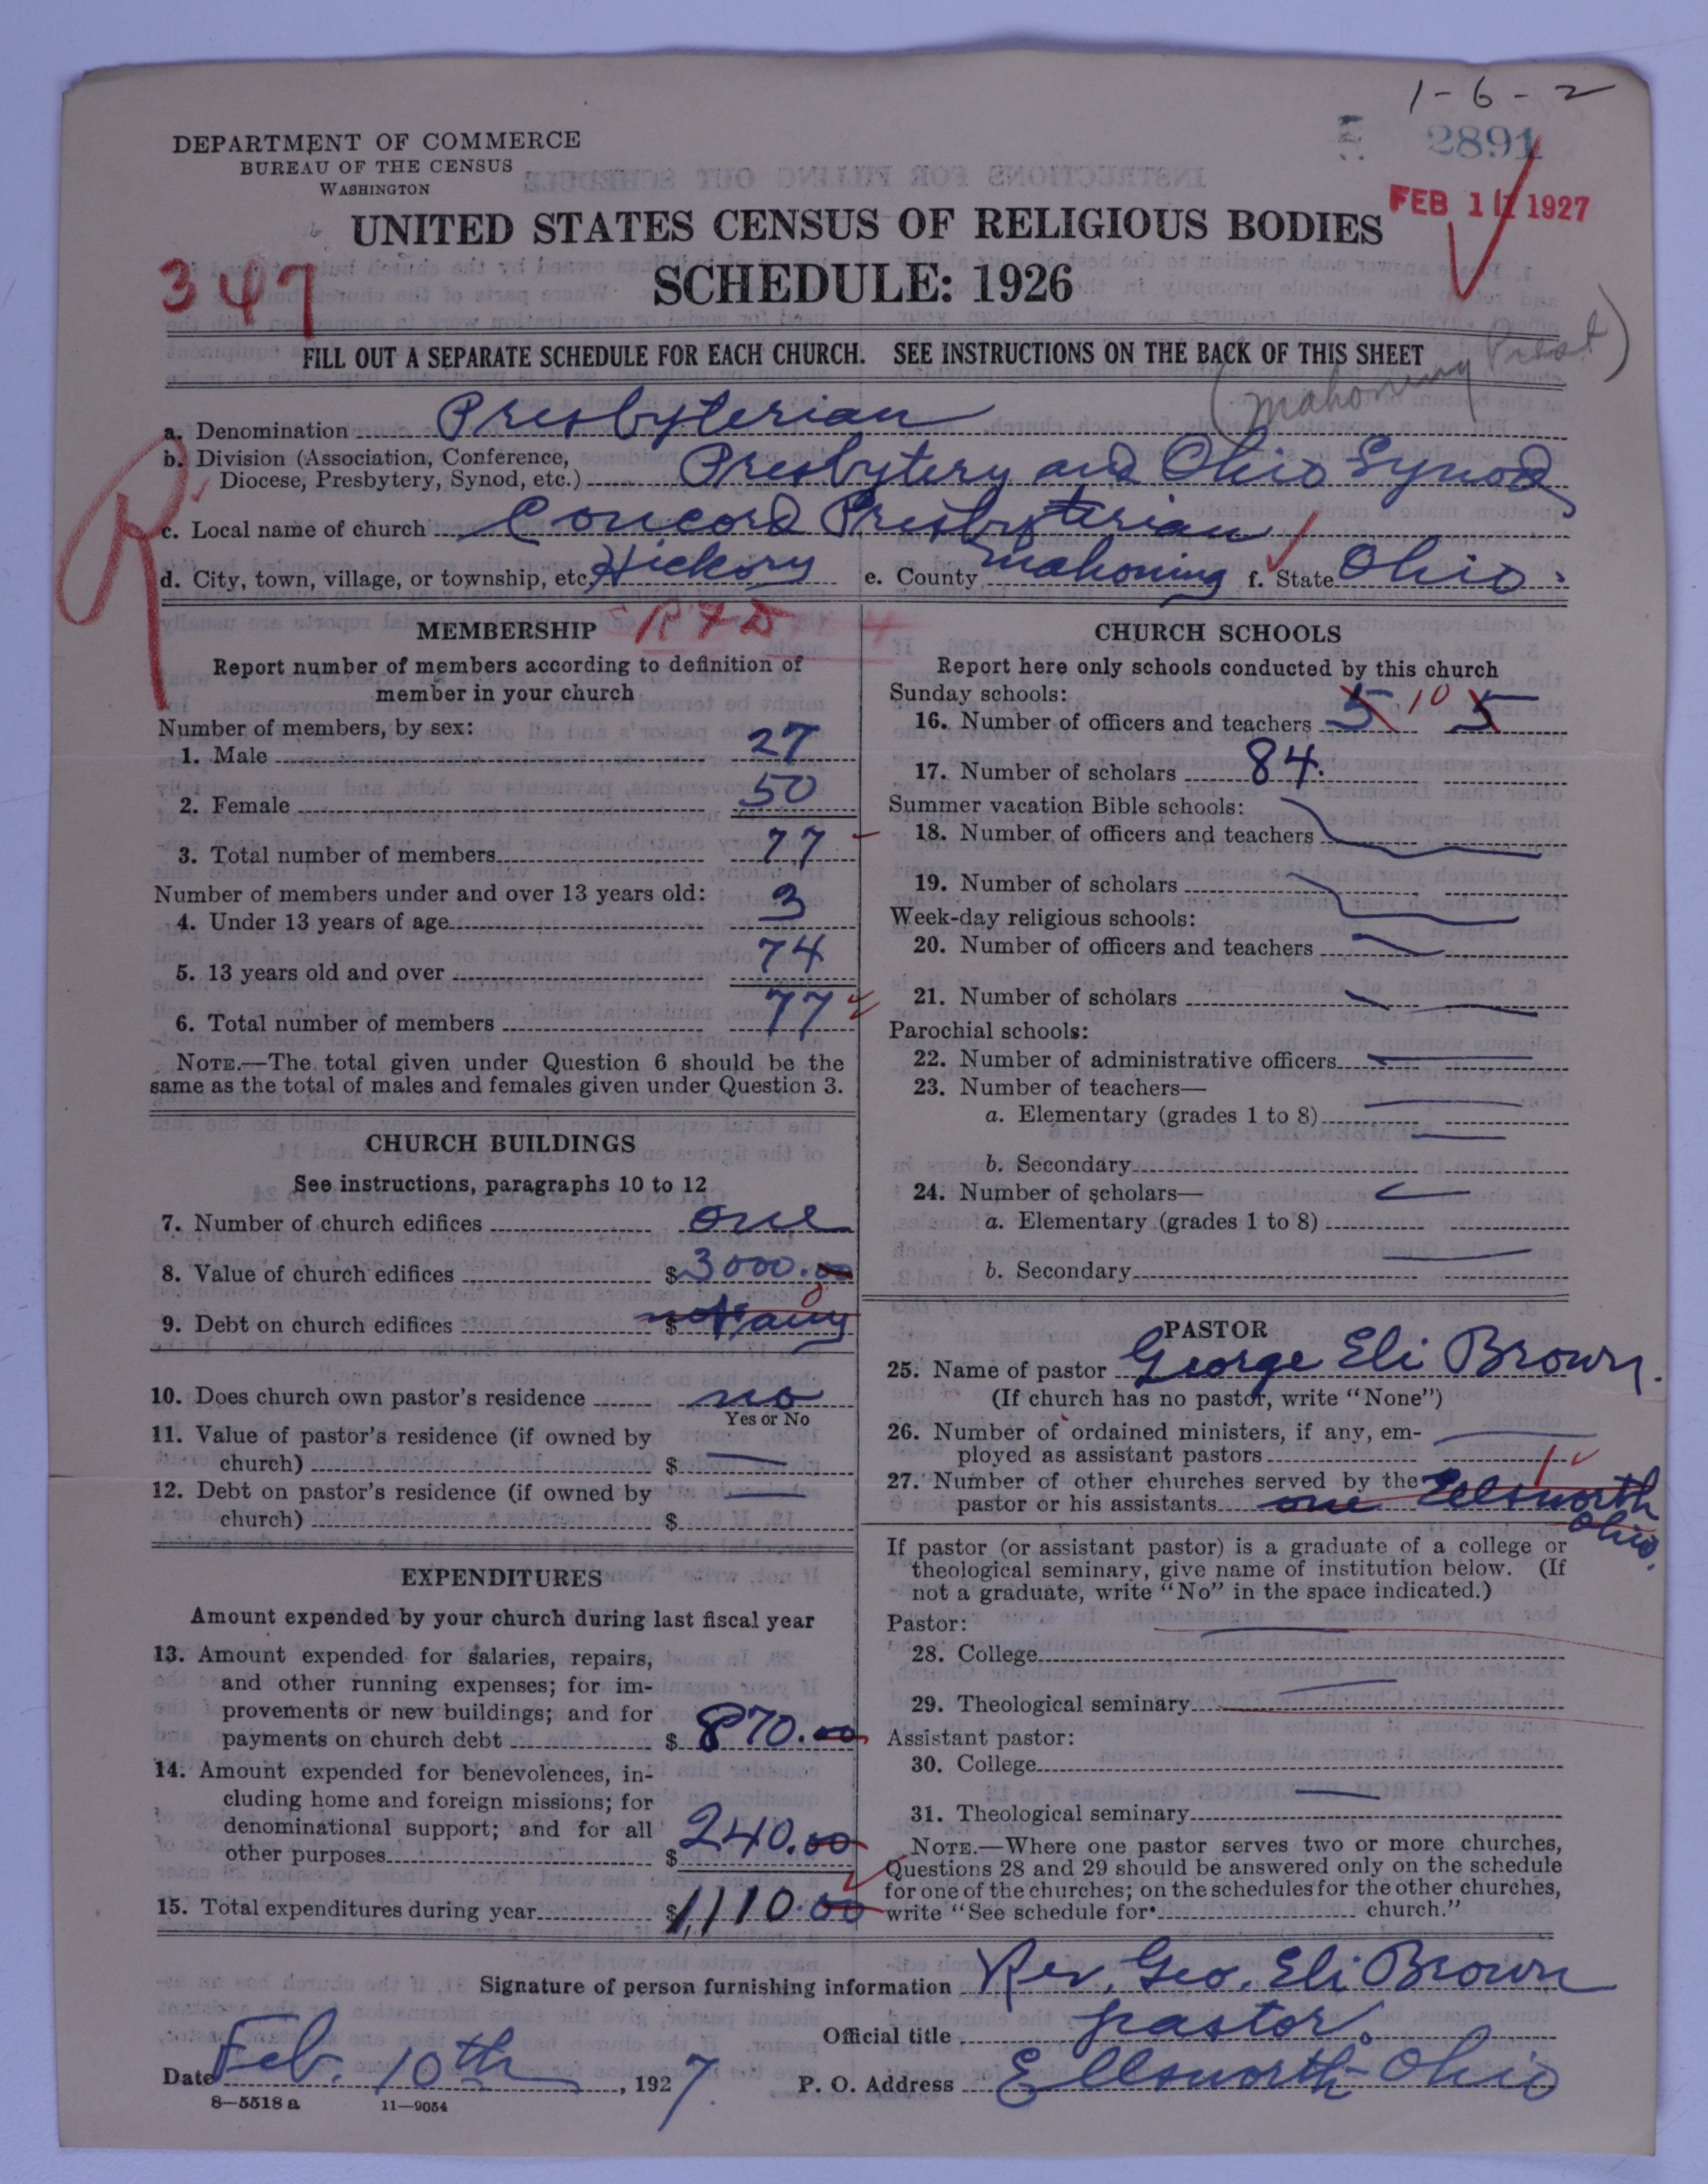 1-6-2
2891
DEPARTMENT OF COMMERCE
BUREAU OF THE CENSUS
WASHINGTON
FEB 11 1927
UNITED STATES CENSUS OF RELIGIOUS BODIES
SCHEDULE: 1926
347
FILL OUT A SEPARATE SCHEDULE FOR EACH CHURCH. SEE INSTRUCTIONS ON THE BACK OF THIS SHEET
(Mahoning Presb)
a. Denomination Presbyterian
b. Division (Association, Conference,
Diocese, Presbytery, Synod, etc.) Presbytery and Ohio Synod
c. Local name of church Concord Presbyterian
d. City, town, village, or township, etc. Hickory e. County Mahoning f. State Ohio.
R
MEMBERSHIP
Report number of members according to definition of
member in your church
Number of members, by sex:
1. Male 27
2. Female 50
3. Total number of members 77
Number of members under and over 13 years old:
4. Under 13 years of age 3
5. 13 years old and over 74
6. Total number of members 77
NOTE.—The total given under Question 6 should be the
same as the total of males and females given under Question 3.
CHURCH BUILDINGS
See instructions, paragraphs 10 to 12
7. Number of church edifices one
8. Value of church edifices $3000.00
9. Debt on church edifices $ not any 0
10. Does church own pastor's residence no
Yes or No
11. Value of pastor's residence (if owned by
church) $
12. Debt on pastor's residence (if owned by
church) $
EXPENDITURES
Amount expended by your church during last fiscal year
13. Amount expended for salaries, repairs,
and other running expenses; for im-
provements or new buildings; and for
payments on church debt $ 870.00
14. Amount expended for benevolences, in-
cluding home and foreign missions; for
denominational support; and for all
other purposes $ 240.00
15. Total expenditures during year $1,110.00
CHURCH SCHOOLS
Report here only schools conducted by this church
Sunday schools:
16. Number of officers and teachers 5 10 5
17. Number of scholars 84.
Summer vacation Bible schools:
18. Number of officers and teachers
19. Number of scholars
Week-day religious schools:
20. Number of officers and teachers
21. Number of scholars
Parochial schools:
22. Number of administrative officers
23. Number of teachers—
a. Elementary (grades 1 to 8)
b. Secondary
24. Number of scholars—
a. Elementary (grades 1 to 8)
b. Secondary
PASTOR
25. Name of pastor George Eli Brown.
(If church has no pastor, write "None")
26. Number of ordained ministers, if any, em-
ployed as assistant pastors
27. Number of other churches served by the
pastor or his assistants one Ellsworth 1
Ohio.
If pastor (or assistant pastor) is a graduate of a college or
theological seminary, give name of institution below. (If
not a graduate, write "No" in the space indicated.)
Pastor:
28. College
29. Theological seminary
Assistant pastor:
30. College
31. Theological seminary
NOTE.—Where one pastor serves two or more churches,
Questions 28 and 29 should be answered only on the schedule
for one of the churches; on the schedules for the other churches,
write "See schedule for church."
Signature of person furnishing information Rev. Geo. Eli Brown
Official title pastor.
Date Feb. 10th, 1927. P. O. Address Ellsworth-Ohio
8—5518 a 11—9054